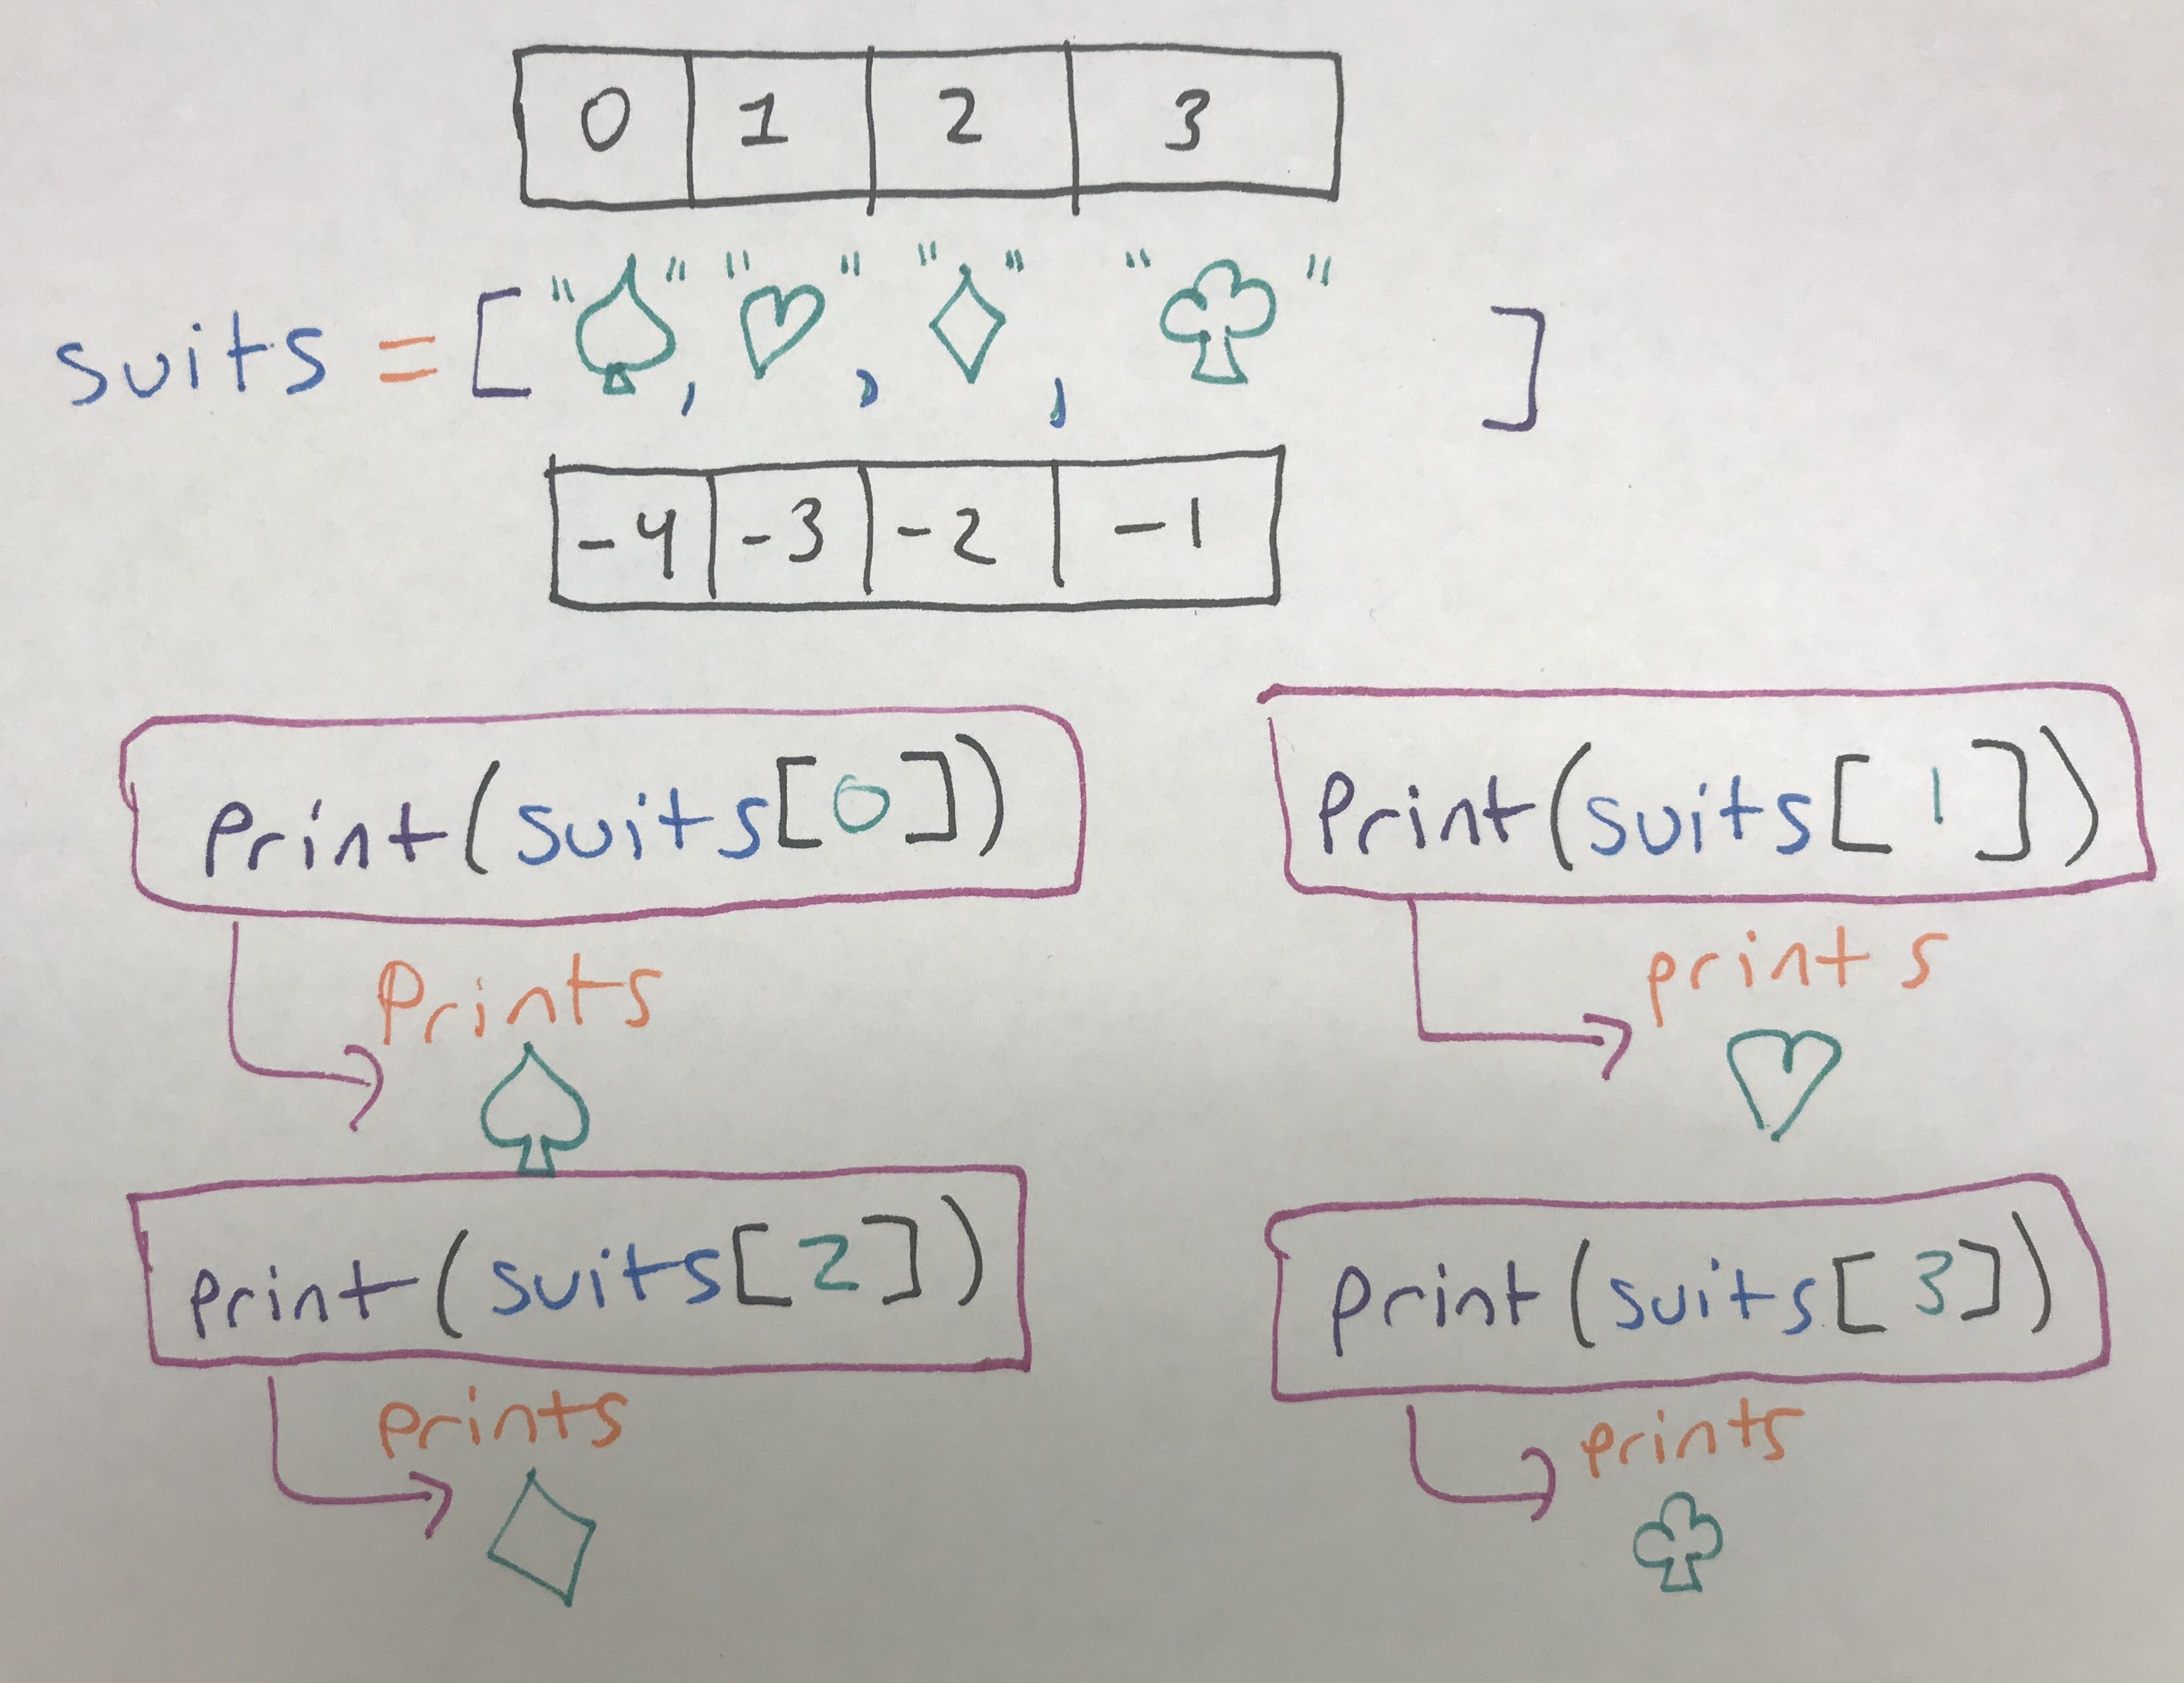 0 1 2 3
suits = ["♤", "♡", "♢", "♧"]
-4 -3 -2 -1
Print(suits[0])
Print(suits[1])
Prints
♤
prints
♡
print(suits[2])
print(suits[3])
prints
♢
prints
♧